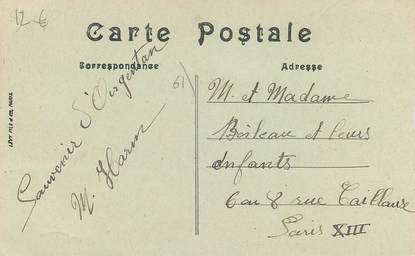 12 €
Carte Postale
Correspondance
Adresse
61
Souvenir d'Argentan
M. Harm
M. et Madame
Boileau et leurs
enfants
6 ou 8 rue Caillaux
Paris XIII